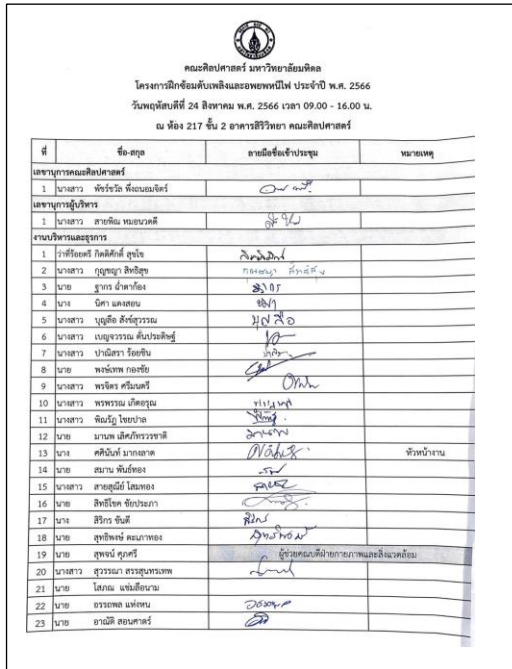 คณะศิลปศาสตร์ มหาวิทยาลัยมหิดล
โครงการฝึกซ้อมดับเพลิงและอพยพหนีไฟ ประจำปี พ.ศ. 2566
วันพฤหัสบดีที่ 24 สิงหาคม พ.ศ. 2566 เวลา 09.00 - 16.00 น.
ณ ห้อง 217 ชั้น 2 อาคารสิริวิทยา คณะศิลปศาสตร์
ที่ ชื่อ-สกุล ลายมือชื่อเข้าประชุม หมายเหตุ
เลขานุการคณะศิลปศาสตร์
1 นางสาว พัชร์ขวัล พึ่งถนอมจิตร์
เลขานุการผู้บริหาร
1 นางสาว สายพิณ หมอนวดดี
งานบริหารและธุรการ
1 ว่าที่ร้อยตรี กิตติศักดิ์ สุขใข
2 นางสาว กุญชญา สิทธิสุข
3 นาย ฐากร ฉ่ำตาก้อง ฐากร
4 นาง นิศา แดงสอน นิศา
5 นางสาว บุญลือ สังข์สุวรรณ บุญลือ
6 นางสาว เบญจวรรณ ตันประดิษฐ์
7 นางสาว ปาณิสรา ร้อยชิน
8 นาย พงษ์เทพ กองชัย
9 นางสาว พรจิตร ศรีมนตรี
10 นางสาว พรพรรณ เกิดอรุณ
11 นางสาว พิณรัฏ ไชยปาล
12 นาย มานพ เลิศภัทรวรชาติ มานพ
13 นาง ศศินันท์ มากงลาด หัวหน้างาน
14 นาย สมาน พันธ์ทอง
15 นางสาว สายสุณีย์ โสมทอง
16 นาย สิทธิโชค ชัยประภา
17 นาง สิริกร ขันดี สิริกร
18 นาย สุทธิพงษ์ ตะเภาทอง
19 นาย สุพจน์ ศุภศรี ผู้ช่วยคณบดีฝ่ายกายภาพและสิ่งแวดล้อม
20 นางสาว สุวรรณา สรรสุนทรเทพ
21 นาย โสภณ แช่มลือนาม
22 นาย อรรถพล แห่งหน อรรถพล
23 นาย อาณัติ สอนศาตร์